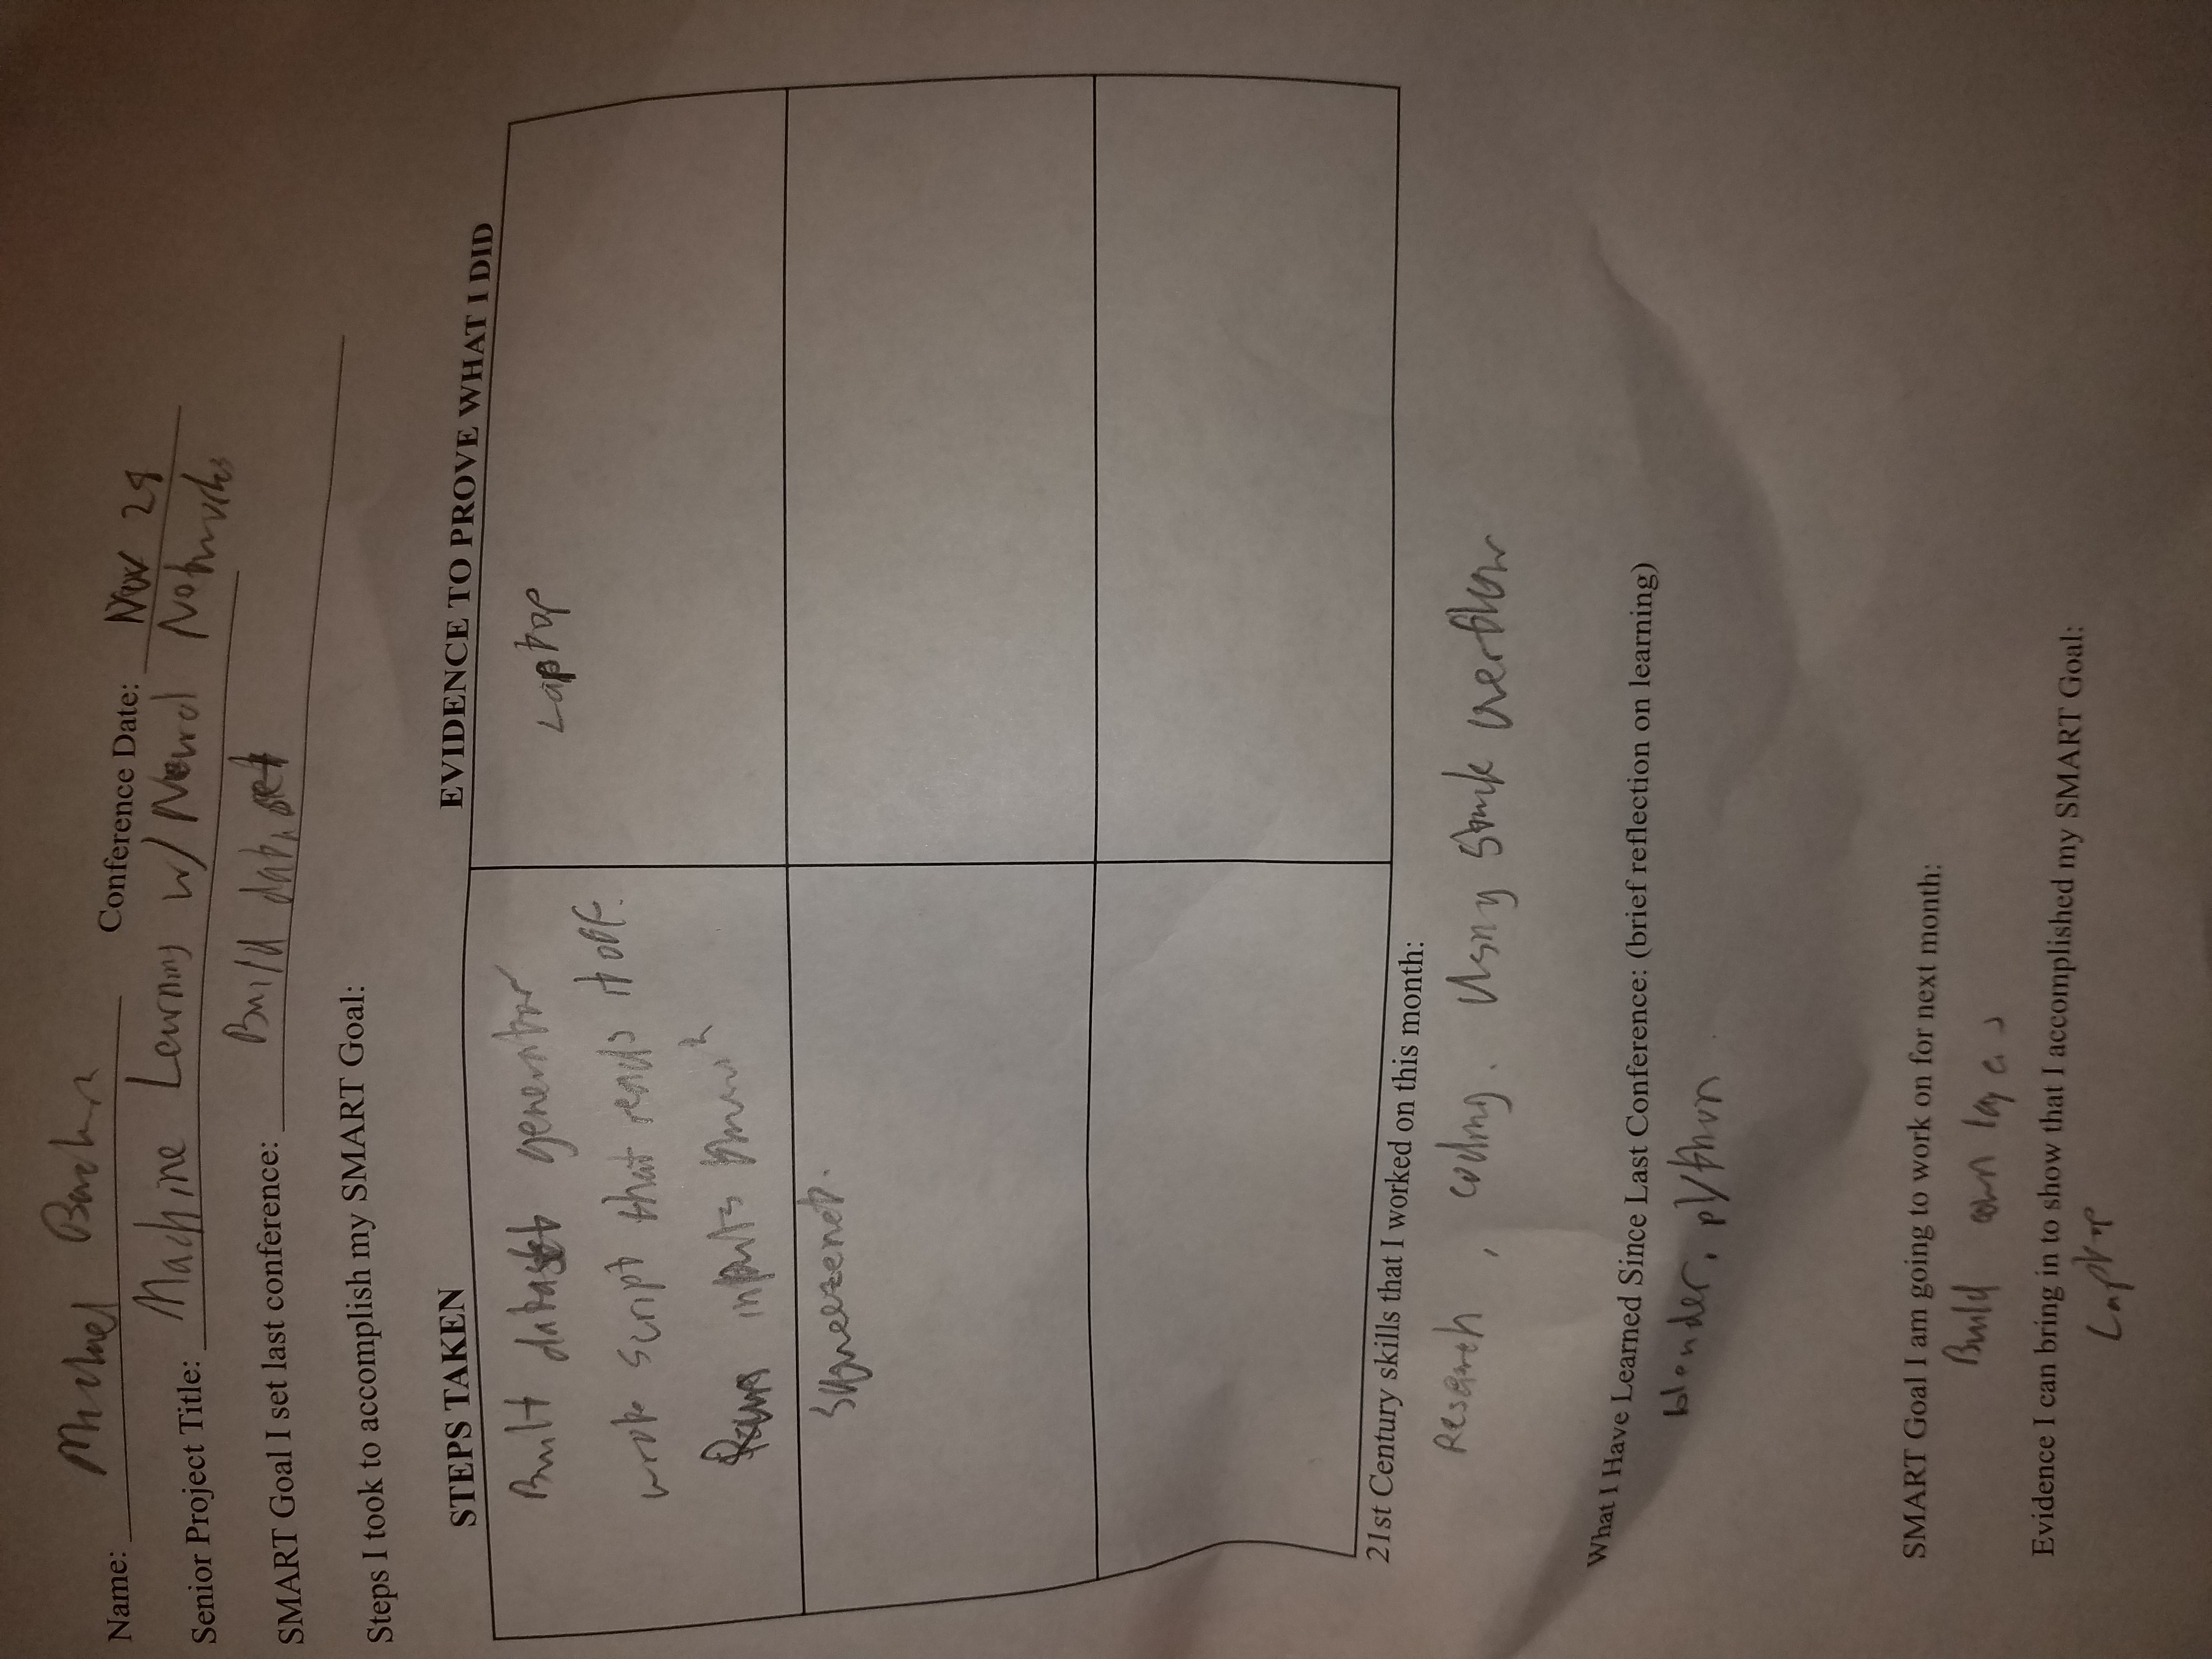 Name: Michael
Conference Date: Nov 28
Senior Project Title: Machine Learning w/ Neural Networks
SMART Goal I set last conference: Build dataset
Steps I took to accomplish my SMART Goal:
STEPS TAKEN
EVIDENCE TO PROVE WHAT I DID
Built dataset generator
Laptop
wrote script that reads it off.
Runs inputs through
Squeezenet.
21st Century skills that I worked on this month:
Research, coding. Using stack overflow
What I Have Learned Since Last Conference: (brief reflection on learning)
blender, python
SMART Goal I am going to work on for next month:
Build own layers
Evidence I can bring in to show that I accomplished my SMART Goal:
Laptop